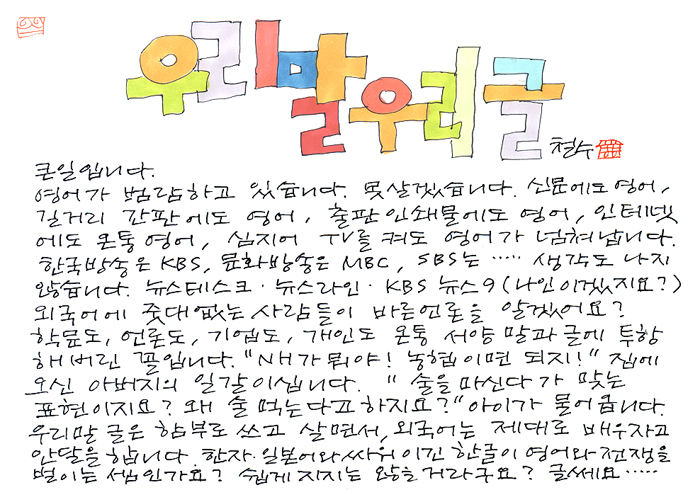 우리말 우리글
철수
큰일입니다.
영어가 범람하고 있습니다. 못살겠습니다. 신문에도 영어,
길거리 간판에도 영어, 출판인쇄물에도 영어, 인터넷
에도 온통 영어, 심지어 TV를 켜도 영어가 넘쳐납니다.
한국방송은 KBS, 문화방송은 MBC, SBS는 ····· 생각도 나지
않습니다. 뉴스데스크·뉴스라인·KBS 뉴스9 (나인이겠지요?)
외국어에 줏대없는 사람들이 바른언론을 알겠어요?
학문도, 언론도, 기업도, 개인도 온통 서양 말과 글에 투항
해 버린 꼴입니다. "NH가 뭐야! 농협이면 되지!" 집에
오신 아버지의 일갈이십니다. "술을 마신다가 맞는
표현이지요? 왜 술 먹는다고 하지요?" 아이가 물어옵니다.
우리말 글은 함부로 쓰고 살면서, 외국어는 제대로 배우자고
안달을 합니다. 한자·일본어와 싸워 이긴 한글이 영어와 전쟁을
벌이는 셈인가요? 쉽게 지지는 않을 거라구요? 글쎄요 ·····